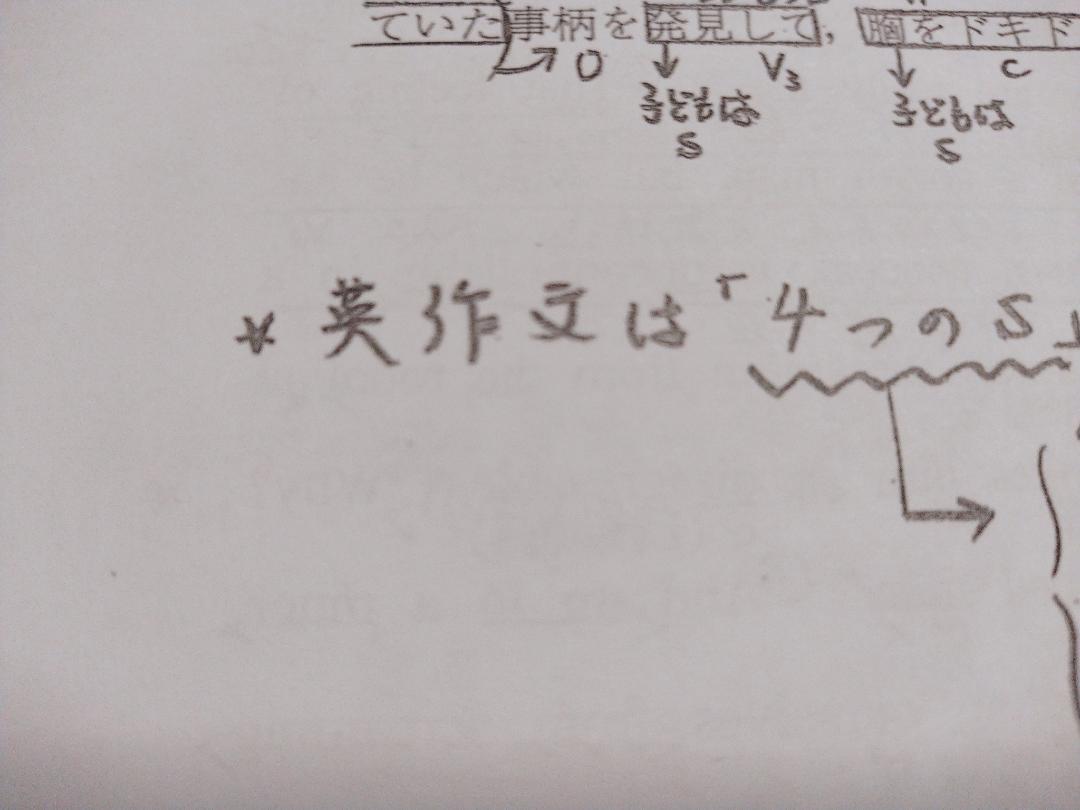 ていた事柄を発見して，胸をドキド
O V3 C
子どもは 子どもは
S S
* 英作文は「4つのS」